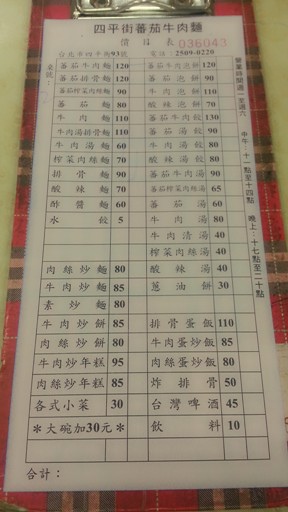 四平街蕃茄牛肉麵
價目表 036043
台北市四平街93號 電話：2509-0220
桌號：
蕃茄牛肉麵 120 蕃茄牛肉泡餅 120
蕃茄排骨麵 120 蕃茄泡餅 90
蕃茄榨菜肉絲麵 90 牛肉泡餅 110
蕃茄麵 80 酸辣泡餅 70
牛肉麵 110 蕃茄牛肉餃 130
牛肉湯排骨麵 110 蕃茄湯餃 90
牛肉湯麵 60 牛肉湯餃 80
榨菜肉絲麵 70 酸辣湯餃 80
排骨麵 90 蕃茄牛肉湯 90
酸辣麵 70 蕃茄榨菜肉絲湯 65
酢醬麵 60 蕃茄湯 60
水餃 5 牛肉湯 80
牛肉清湯 40
榨菜肉絲湯 40
肉絲炒麵 80 酸辣湯 40
牛肉炒麵 85 蔥油餅 30
素炒麵 80
牛肉炒餅 85 排骨蛋飯 110
肉絲炒餅 80 牛肉蛋炒飯 85
牛肉炒年糕 95 肉絲蛋炒飯 80
肉絲炒年糕 85 炸排骨 50
各式小菜 30 台灣啤酒 45
＊大碗加30元＊ 飲料 10
合計：
營業時間週一至週六
中午：十一點至十四點
晚上：十七點至二十點